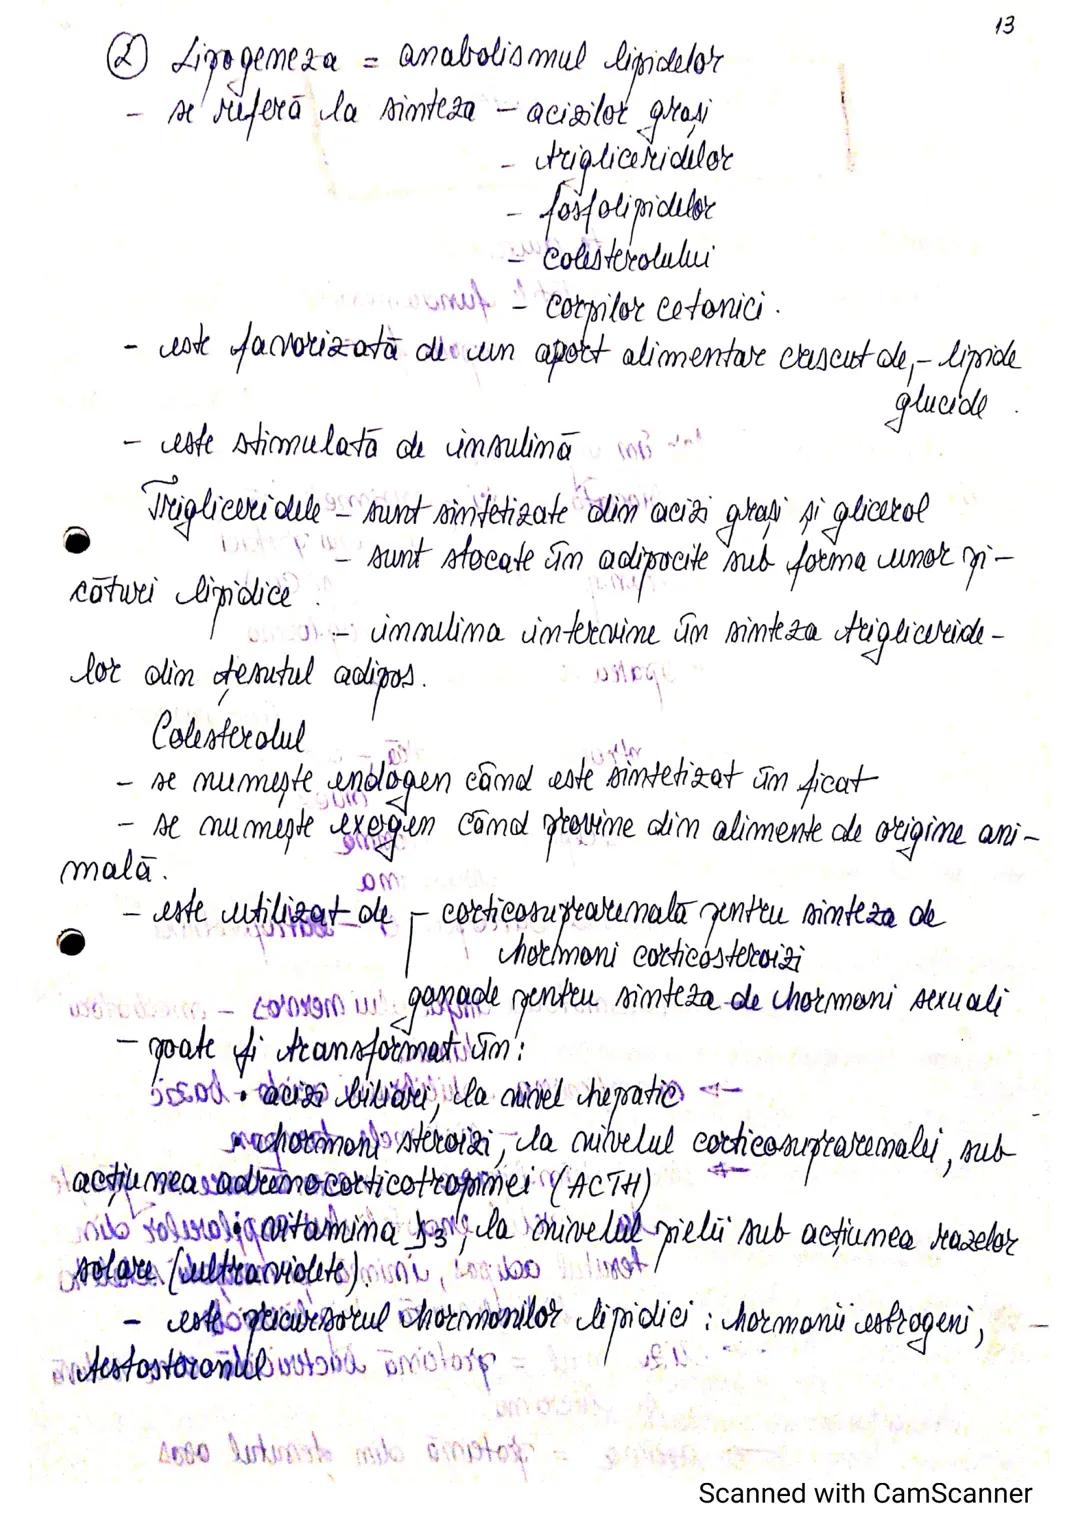 13
② Lipogeneza = anabolismul lipidelor
- se referă la sinteza - acizilor grași
- trigliceridelor
- fosfolipidelor
- colesterolului
- corpilor cetonici.
- este favorizată de un aport alimentar crescut de - lipide
glucide.
- este stimulată de insulină
Trigliceridele - sunt sintetizate din acizi grași și glicerol
- sunt stocate în adipocite sub forma unor pi-
cături lipidice.
- insulina intervine în sinteza trigliceride-
lor din țesutul adipos.
Colesterolul
- se numește endogen când este sintetizat în ficat
- se numește exogen când provine din alimente de origine ani-
mală.
- este utilizat de - corticosuprarenală pentru sinteza de
hormoni corticosteroizi
gonade pentru sinteza de hormoni sexuali
- poate fi transformat în:
• acizi biliari, la nivel hepatic
• hormoni steroizi, la nivelul corticosuprarenalei, sub
acțiunea adrenocorticotropinei (ACTH)
• vitamina D3, la nivelul pielii sub acțiunea razelor
solare (ultraviolete).
- este precursorul hormonilor lipidici : hormonii estrogeni,
testosteronul
Scanned with CamScanner